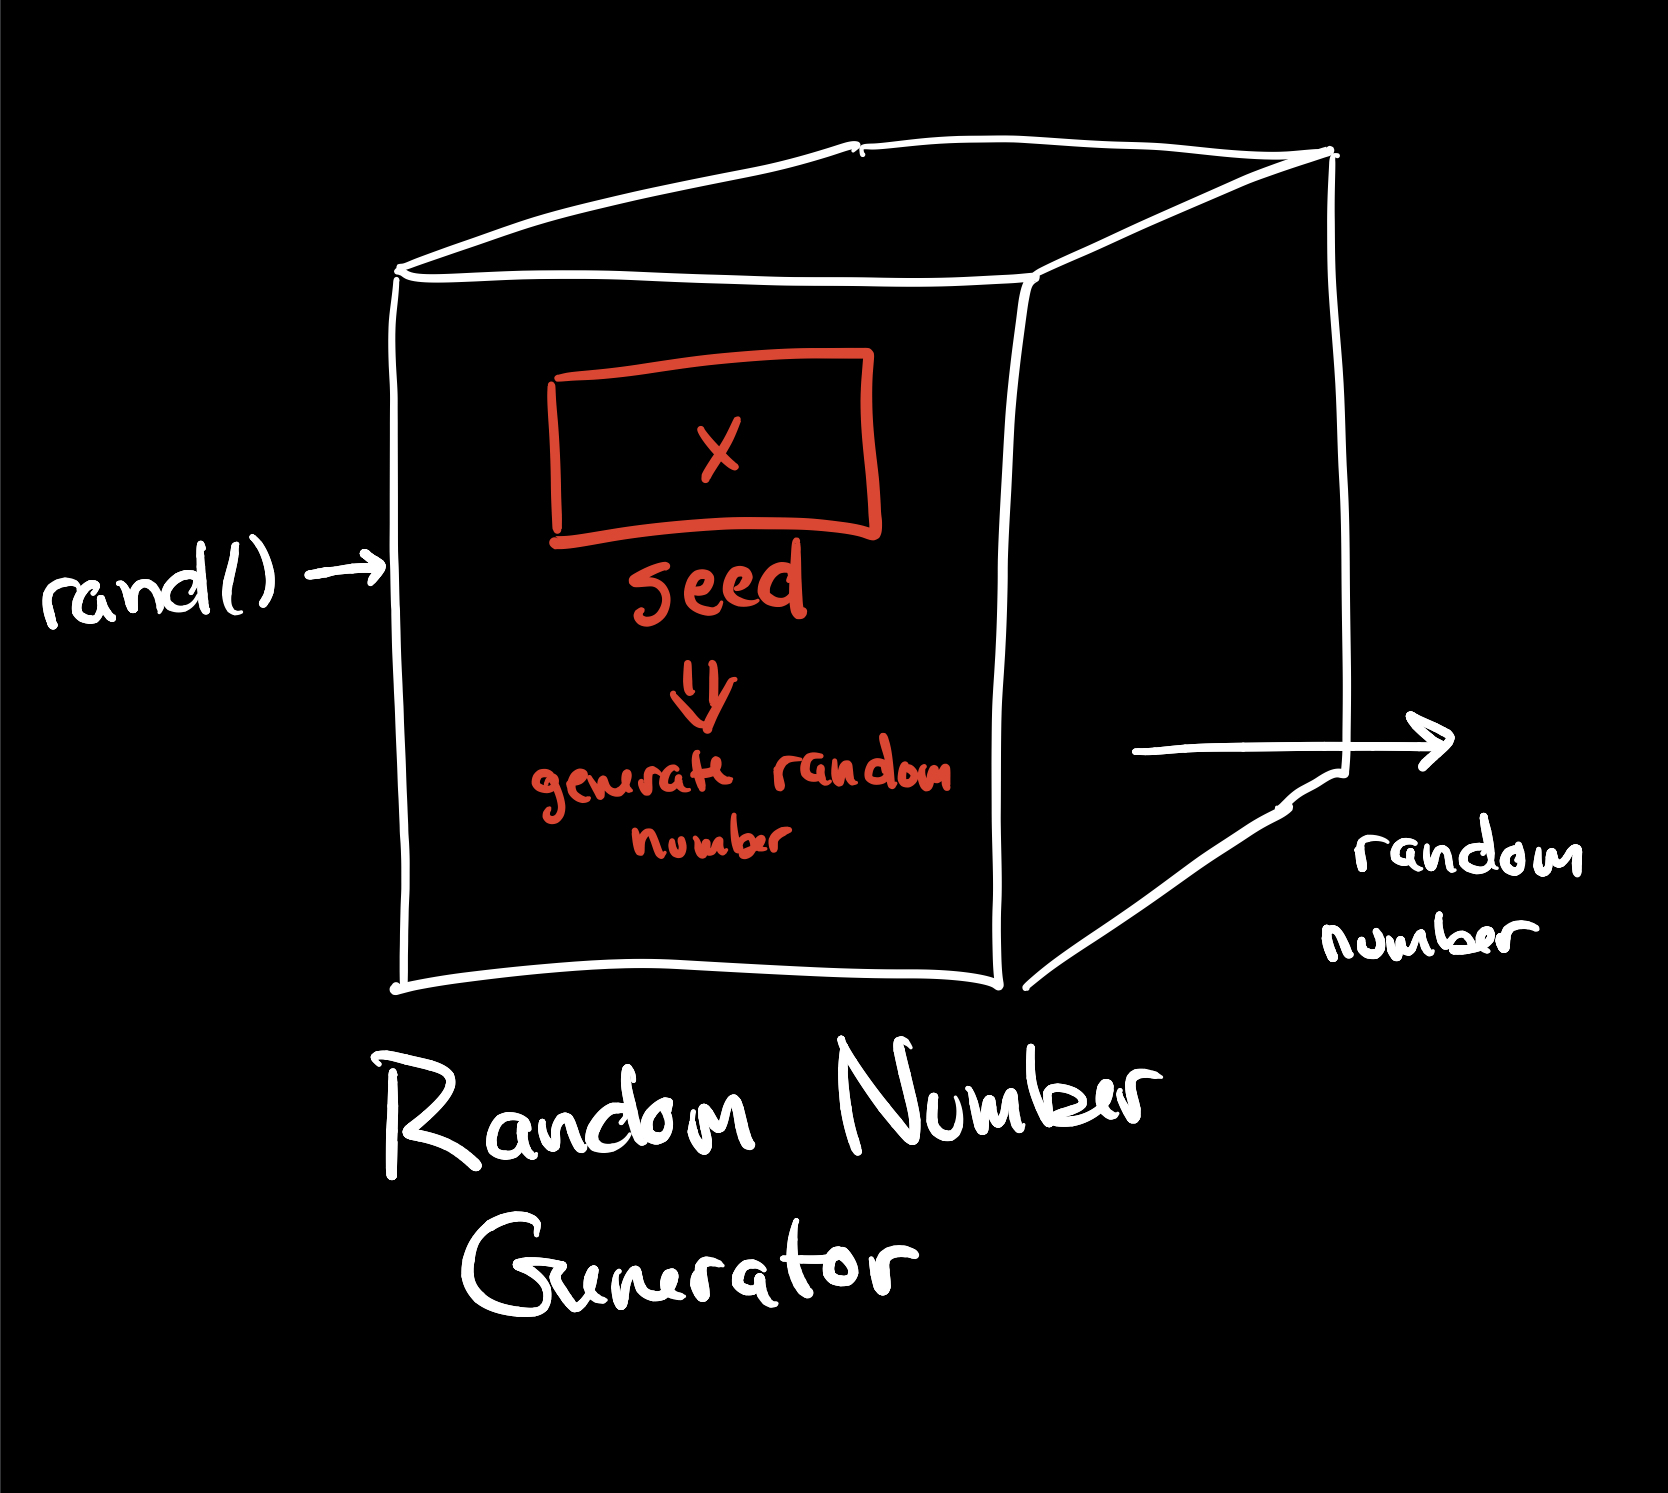 X
seed
rand()
generate random
number
random
number
Random Number
Generator